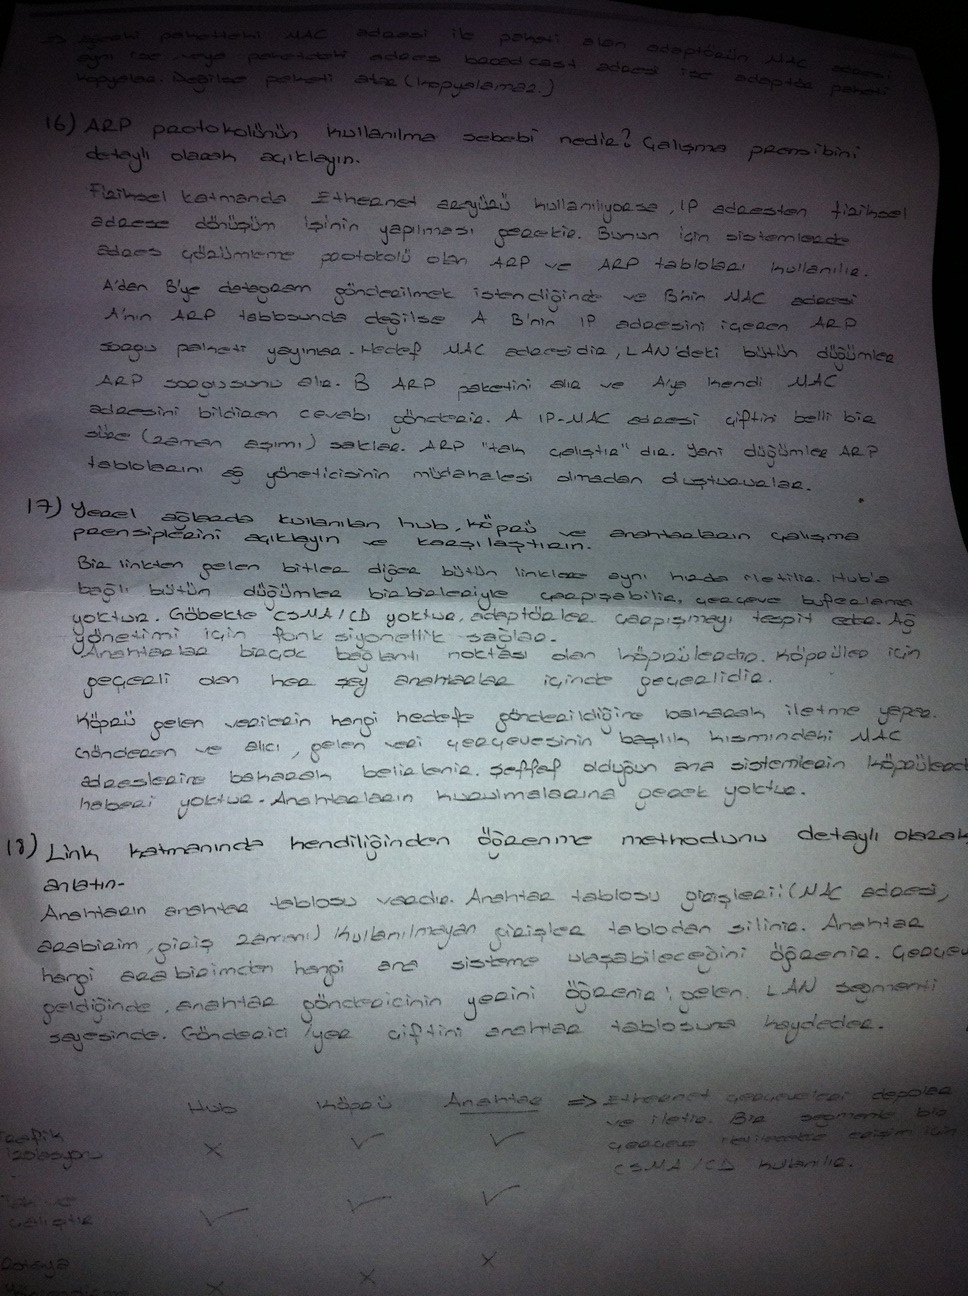 paketteki MAC adresi ile paketi alan adaptörün MAC adresi
aynı ise veya paketteki adres broadcast adresi ise adaptör paketi
kopyalar. Değilse paketi atar (kopyalamaz.)
16) ARP protokolünün kullanılma sebebi nedir? Çalışma prensibini
detaylı olarak açıklayın.
Fiziksel katmanda Ethernet arayüzü kullanılıyorsa, IP adresten fiziksel
adrese dönüşüm işinin yapılması gerekir. Bunun için sistemlerde
adres çözümleme protokolü olan ARP ve ARP tabloları kullanılır.
A'dan B'ye datagram gönderilmek istendiğinde ve B'nin MAC adresi
A'nın ARP tablosunda değilse A B'nin IP adresini içeren ARP
sorgu paketi yayınlar. Hedef MAC adresidir, LAN'deki bütün düğümler
ARP sorgusunu alır. B ARP paketini alır ve A'ya kendi MAC
adresini bildiren cevabı gönderir. A IP-MAC adresi çiftini belli bir
süre (zaman aşımı) saklar. ARP "tak çalıştır" dır. Yani düğümler ARP
tablolarını ağ yöneticisinin müdahalesi olmadan oluştururlar.
17) Yerel ağlarda kullanılan hub, köprü ve anahtarların çalışma
prensiplerini açıklayın ve karşılaştırın.
Bir linkten gelen bitler diğer bütün linklere aynı hızda iletilir. Hub'a
bağlı bütün düğümler birbirleriyle çarpışabilir, çerçeve buferlama
yoktur. Göbekte CSMA/CD yoktur, adaptörler çarpışmayı tespit eder. Ağ
yönetimi için fonksiyonellik sağlar.
Anahtarlar birçok bağlantı noktası olan köprülerdir. Köprüler için
geçerli olan her şey anahtarlar içinde geçerlidir.
Köprü gelen verilerin hangi hedefe gönderildiğine bakarak iletme yapar.
Gönderen ve alıcı, gelen veri çerçevesinin başlık kısmındaki MAC
adreslerine bakarak belirlenir. Şeffaf olduğun ana sistemlerin köprülerden
haberi yoktur. Anahtarların kurulmalarına gerek yoktur.
18) Link katmanında kendiliğinden öğrenme methodunu detaylı olarak
anlatın.
Anahtarın anahtar tablosu vardır. Anahtar tablosu girişleri: (MAC adresi,
arabirim, giriş zamanı) Kullanılmayan girişler tablodan silinir. Anahtar
hangi arabirimden hangi ana sisteme ulaşabileceğini öğrenir. Çerçeve
geldiğinde, anahtar göndericinin yerini öğrenir; gelen LAN segmenti
sayesinde. Gönderici/yer çiftini anahtar tablosuna kaydeder.
Hub Köprü Anahtar ⇒ Ethernet çerçeveleri depolar
ve iletir. Bir segmente bir
Trafik izolasyonu × ✓ ✓ çerçeve iletilecekse erişim için
CSMA/CD kullanılır.
Tak ve
çalıştır ✓ ✓ ✓
× × ×